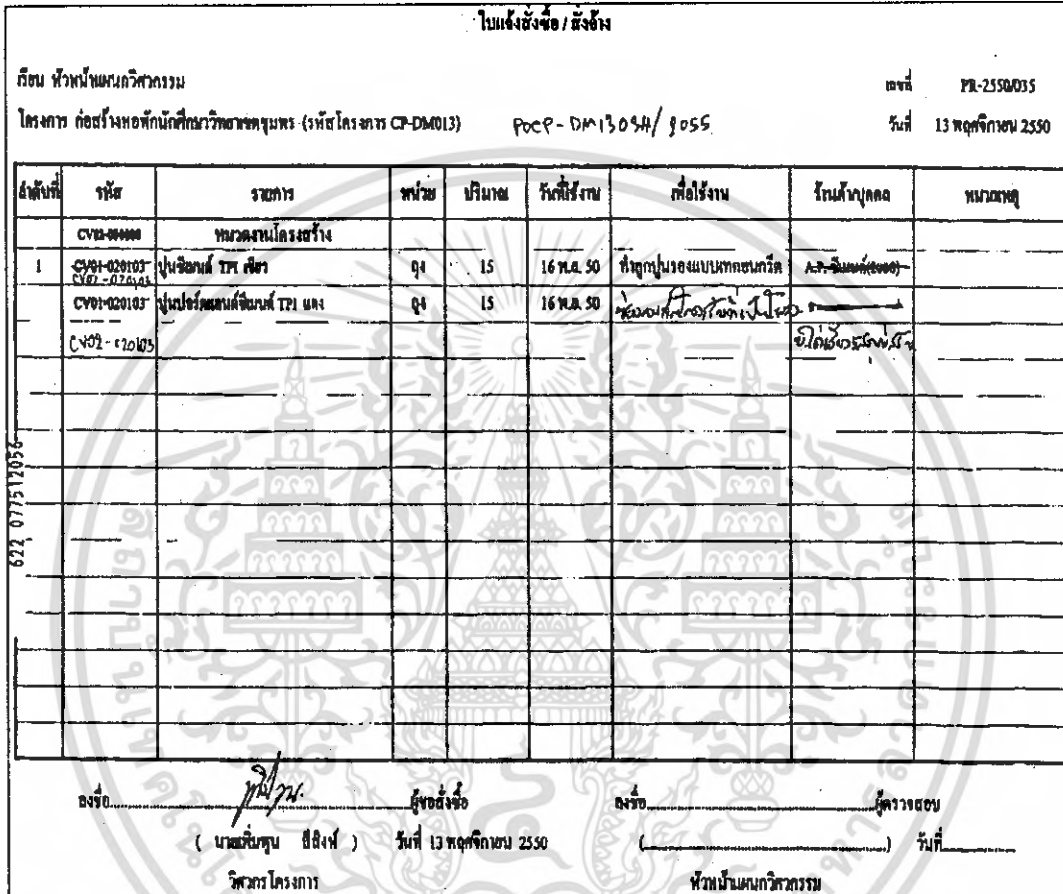 ใบแจ้งสั่งซื้อ / สั่งจ้าง
เรียน หัวหน้าแผนกวิศวกรรม เลขที่ PR-2550/035
โครงการ ก่อสร้างหอพักนักศึกษาวิทยาเขตชุมพร (รหัสโครงการ CP-DM013) POCP-DM1303A/ 9055 วันที่ 13 พฤศจิกายน 2550
ลำดับที่ รหัส รายการ หน่วย ปริมาณ วันที่ใช้งาน เพื่อใช้งาน ร้านค้า/บุคคล หมายเหตุ
หมวดงานโครงสร้าง
1 CV01-020103 ปูนซีเมนต์ TPI เขียว ถุง 15 16 พ.ย. 50 ทำลูกปูนรองแบบเทคอนกรีต A.P. ซีเมนต์(2000)
CV02-020103
CV01-020103 ปูนปอร์ตแลนด์ซีเมนต์ TPI แดง ถุง 15 16 พ.ย. 50
CV02-020103
622 077512056
ลงชื่อ ผู้ขอสั่งซื้อ ลงชื่อ ผู้ตรวจสอบ
( นายเพิ่มพูน สีสิงห์ ) วันที่ 13 พฤศจิกายน 2550 ( ) วันที่
วิศวกรโครงการ หัวหน้าแผนกวิศวกรรม